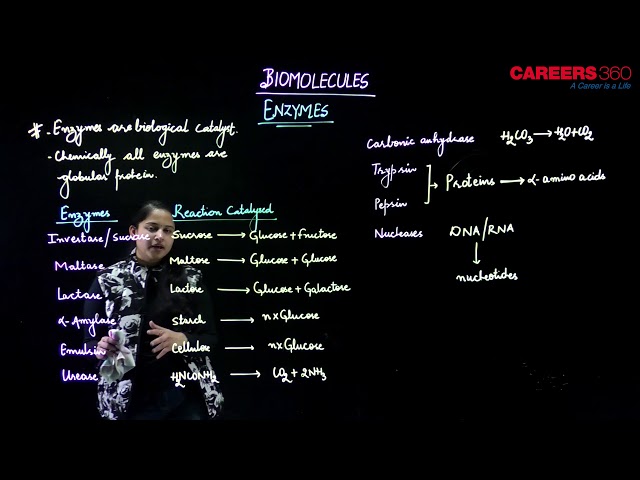 CAREERS360
A Career is a Life
BIOMOLECULES
ENZYMES
* - Enzymes are biological catalyst.
- Chemically all enzymes are
globular protein.
Enzymes Reaction Catalyzed
Invertase/Sucrase Sucrose → Glucose + fructose
Maltase Maltose → Glucose + Glucose
Lactase Lactose → Glucose + Galactose
α-Amylase Starch → n×Glucose
Emulsin Cellulose → n×Glucose
Urease H2NCONH2 → CO2 + 2NH3
Carbonic anhydrase H2CO3 → H2O + CO2
Trypsin
Pepsin
Proteins → α-amino acids
Nucleases DNA/RNA
↓
nucleotides